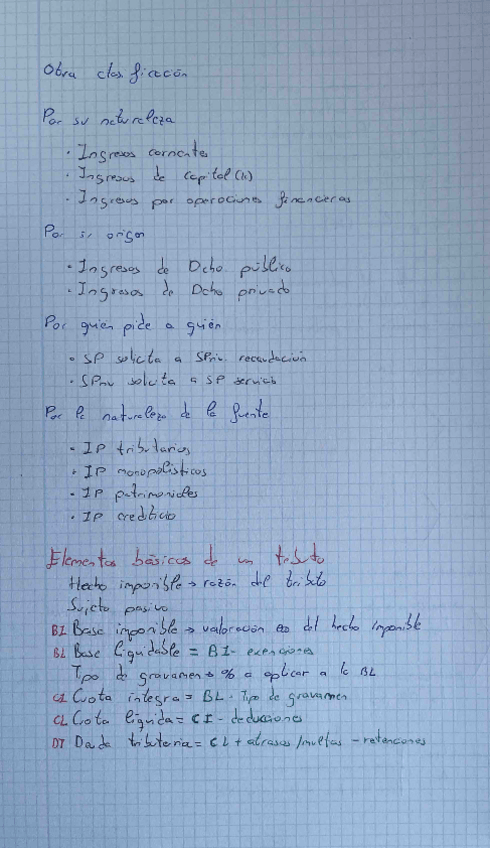 Otra clasificación
Por su naturaleza
· Ingresos corrientes
· Ingresos de capital (k)
· Ingresos por operaciones financieras
Por su origen
· Ingresos de Dcho público
· Ingresos de Dcho privado
Por quien pide a quién
· SP solicita a SPriv recaudación
· SPriv solicita a SP servicio
Por la naturaleza de la fuente
· IP tributarios
· IP monopolísticos
· IP patrimoniales
· IP crediticio
Elementos básicos de un tributo
Hecho imponible → razón del tributo
Sujeto pasivo
BI Base imponible → valoración eo del hecho imponible
BL Base liquidable = BI - exenciones
Tipo de gravamen → % a aplicar a la BL
CI Cuota íntegra = BL · Tipo de gravamen
CL Cota líquida = CI - deducciones
DT Deuda tributaria = CL + atrasos/multas - retenciones